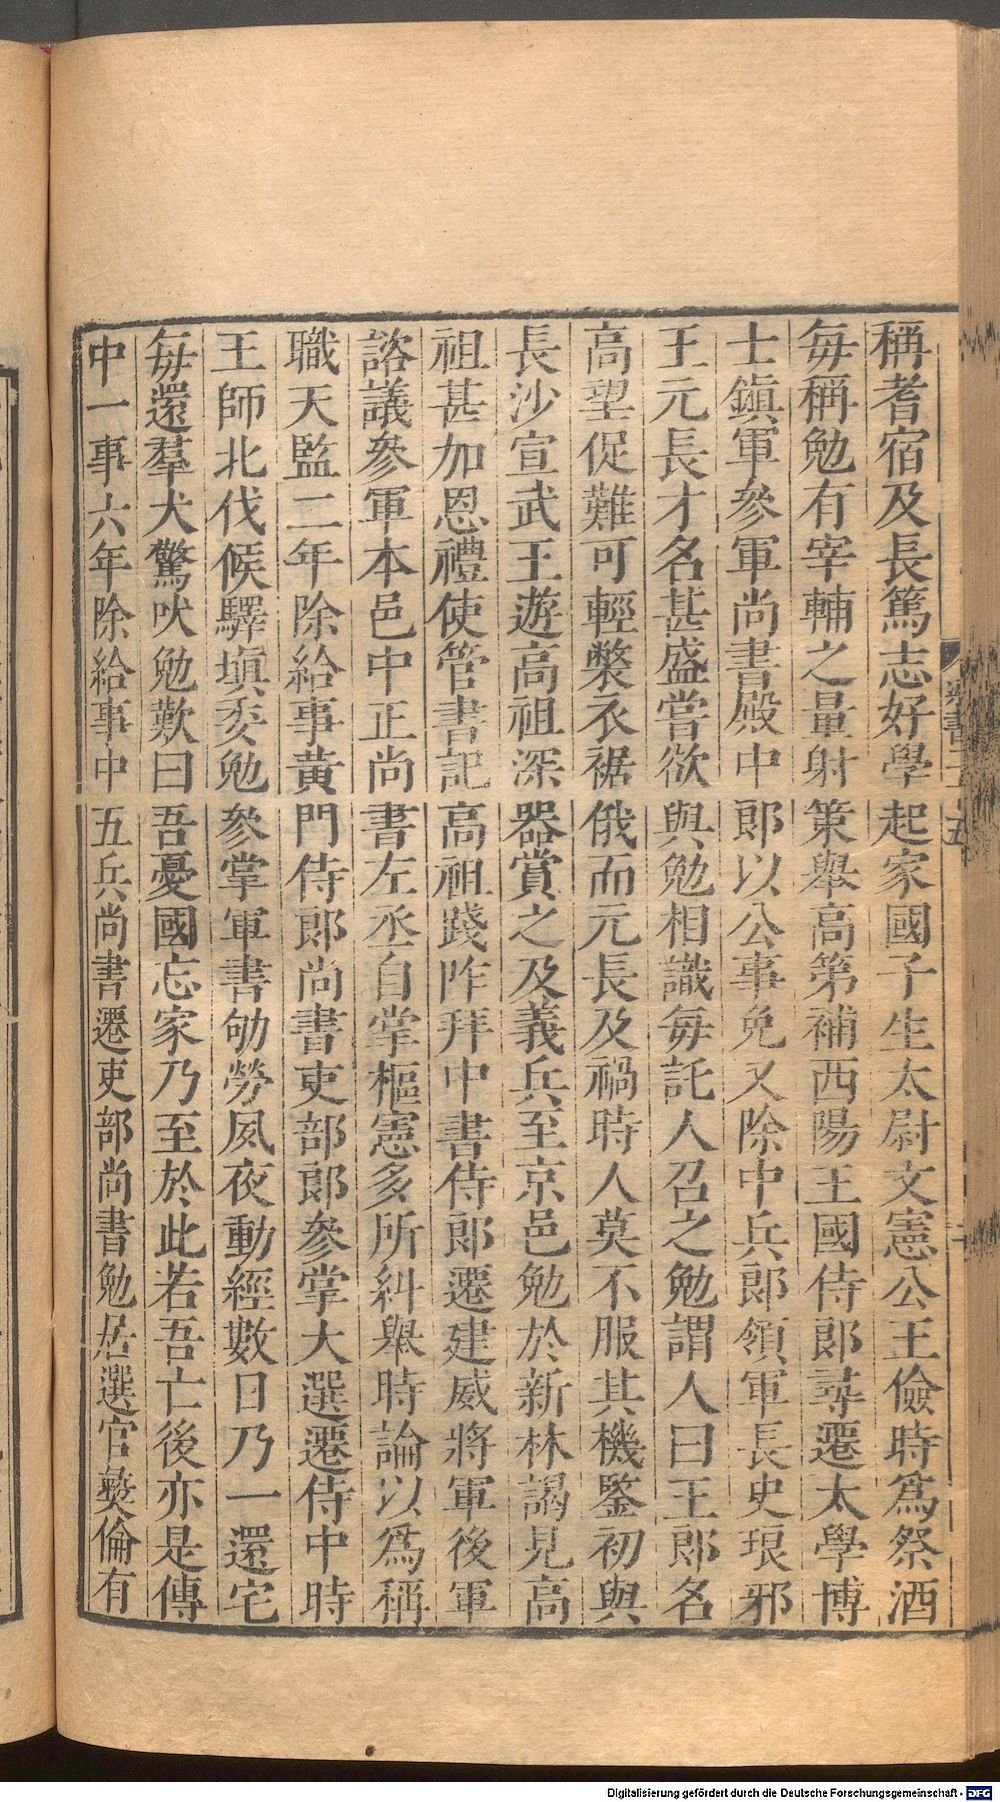 稱耆宿及長篤志好學起家國子生太尉文憲公王儉時爲祭酒
每稱勉有宰輔之量射策舉高第補西陽王國侍郎尋遷太學博
士鎭軍參軍尚書殿中郎以公事免又除中兵郎領軍長史琅邪
王元長才名甚盛嘗欲與勉相識每託人召之勉謂人曰王郎名
高望促難可輕襒衣裾俄而元長及禍時人莫不服其機鑒初與
長沙宣武王遊高祖深器賞之及義兵至京邑勉於新林謁見高
祖甚加恩禮使管書記高祖踐阼拜中書侍郎遷建威將軍後軍
諮議參軍本邑中正尚書左丞自掌樞憲多所糾舉時論以爲稱
職天監二年除給事黃門侍郎尚書吏部郎參掌大選遷侍中時
王師北伐候驛塡委勉參掌軍書劬勞夙夜動經數日乃一還宅
每還羣犬驚吠勉歎曰吾憂國忘家乃至於此若吾亡後亦是傳
中一事六年除給事中五兵尚書遷吏部尚書勉居選官彝倫有
Digitalisierung gefördert durch die Deutsche Forschungsgemeinschaft - DFG